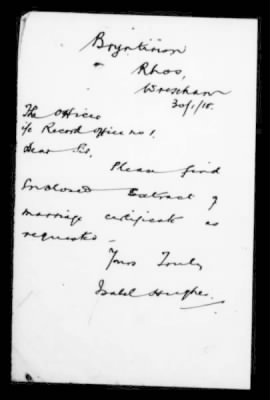 Bryntirion
Rhos,
Wrexham
30/1/18.
The Officer
i/c Record Office no 1.
Dear Sir,
Please find
Enclosed Extract of
marriage certificate as
requested –
Yours Truly
Isabel Hughes.